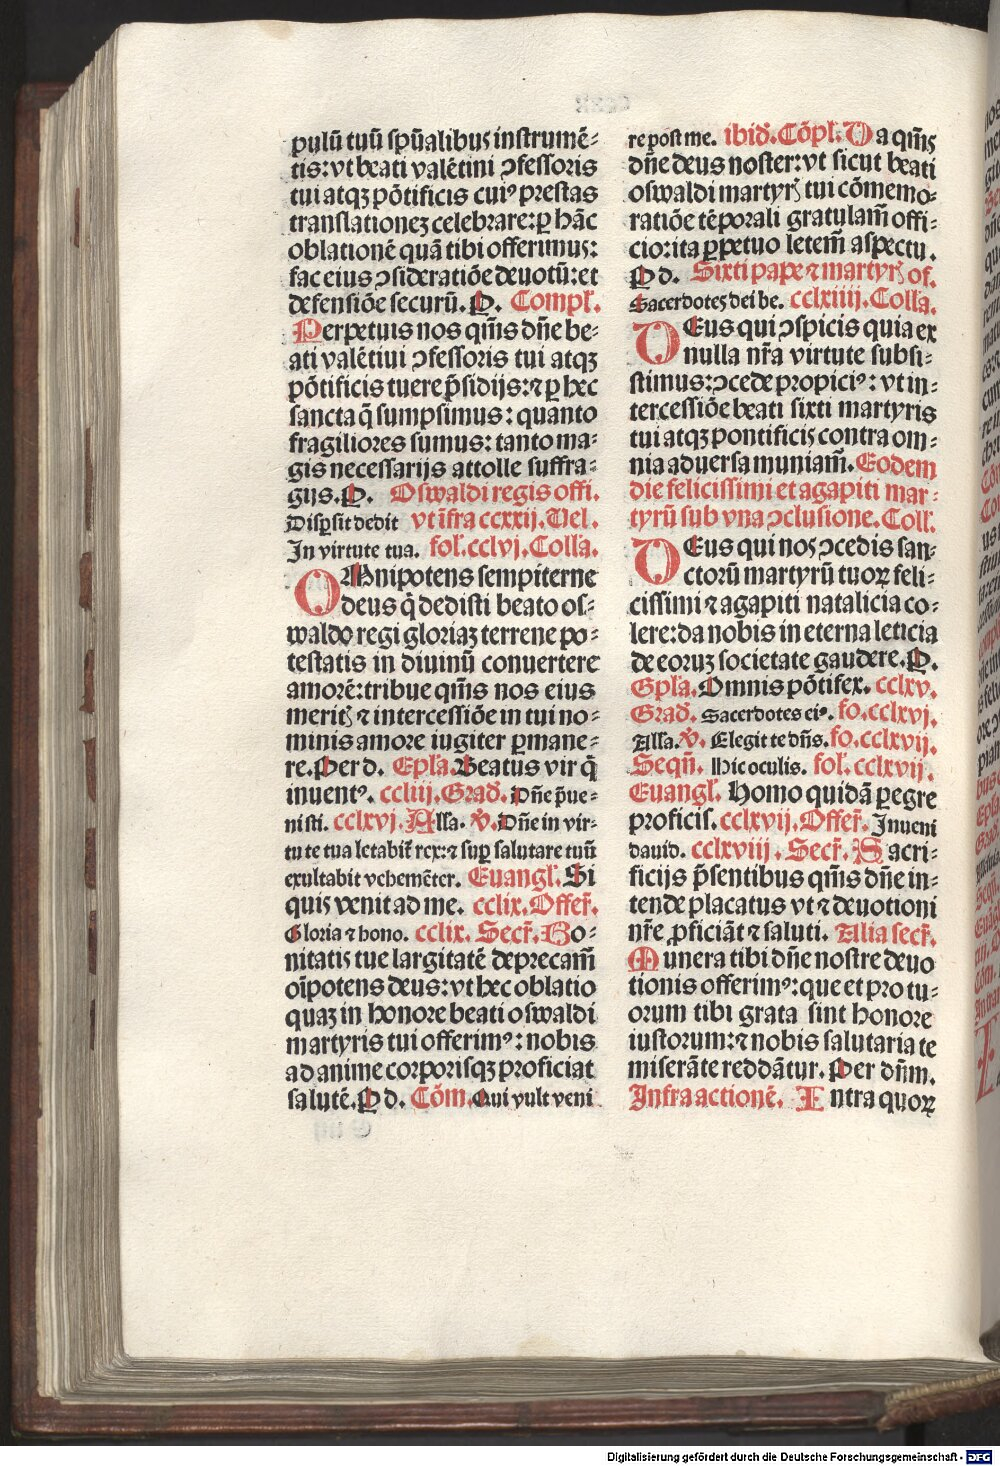 pulū tuū spūalibus instrumē-
tis: vt beati valētini ꝯfessoris
tui atqꝫ pōtificis cuiꝰ prestas
translationeꝫ celebrare: ꝑ hāc
oblationē quā tibi offerimus:
fac eius ꝯsideratiōe deuotū: et
defensiōe securū. P. Compl'.
Perpetuis nos qm̄s dn̄e be-
ati valētiui ꝯfessoris tui atqꝫ
pōtificis tuere p̄sidijs: ⁊ ꝑ hec
sancta q̄ sumpsimus: quanto
fragiliores sumus: tanto ma-
gis necessarijs attolle suffra-
gijs. P. Oswaldi regis offi.
Disꝑsit dedit vt īfra ccxxij. Vel.
In virtute tua. fol. cclvj. Colla.
OMnipotens sempiterne
deus q̇ dedisti beato os-
waldo regi gloriaꝫ terrene po-
testatis in diuinū conuertere
amorē: tribue qm̄s nos eius
merit; ⁊ intercessiōe in tui no-
minis amore iugiter ꝑmane-
re. Per d. Epl'a. Beatus vir q̇
inuentꝰ. ccliij. Grad. Dn̄e p̄ue-
nisti. cclxvj. Alla. v̄. Dn̄e in vir-
tute tua letabit̄ rex: ⁊ suꝑ salutare tuū
exultabit vehemēter. Euangl'. Si
quis venit ad me. cclix. Offer̄.
Gloria ⁊ hono. cclix. Secr̄. Bo-
nitatis tue largitatē deprecam̄
oīpotens deus: vt hec oblatio
quaꝫ in honore beati oswaldi
martyris tui offerimꝰ: nobis
ad anime corporisqꝫ proficiat
salutē. P d. Cōm. Qui vult veni
re post me. ibid. Cōpl'. Da qm̄s
dn̄e deus noster: vt sicut beati
oswaldi martyr; tui cōmemo-
ratiōe tēporali gratulam̄ offi-
cio: ita ꝑpetuo letem̄ aspectu.
P d. Sixti pape ⁊ martyr; of.
Sacerdotes dei be. cclxiiij. Colla.
DEus qui ꝯspicis quia ex
nulla nr̄a virtute subsi-
stimus: ꝯcede propiciꝰ: vt in-
tercessiōe beati sixti martyris
tui atqꝫ pontificis contra om-
nia aduersa muniam̄. Eodem
die felicissimi et agapiti mar-
tyrū sub vna ꝯclusione. Coll'.
DEus qui nos ꝯcedis san-
ctorū martyrū tuoꝝ feli-
cissimi ⁊ agapiti natalicia co-
lere: da nobis in eterna leticia
de eoruꝫ societate gaudere. P.
Epl'a. Omnis pōtifex. cclxv.
Grad. Sacerdotes eiꝰ. fo. cclxvj.
Alla. v̄. Elegit te dn̄s. fo. cclxvij.
Seqn̄. Hic oculis. fol. cclxvij.
Euangl'. Homo quidā ꝑegre
proficis. cclxvij. Offer̄. Inueni
dauid. cclxviij. Secr̄. Sacri-
ficijs p̄sentibus qm̄s dn̄e in-
tende placatus vt ⁊ deuotioni
nr̄e ꝓficiāt ⁊ saluti. Alia secr̄.
Munera tibi dn̄e nostre deuo
tionis offerimꝰ: que et pro tu-
orum tibi grata sint honore
iustorum: ⁊ nobis salutaria te
miserāte reddātur. Per dn̄m.
Infra actionē. Intra quoꝝ
Digitalisierung gefördert durch die Deutsche Forschungsgemeinschaft - DFG